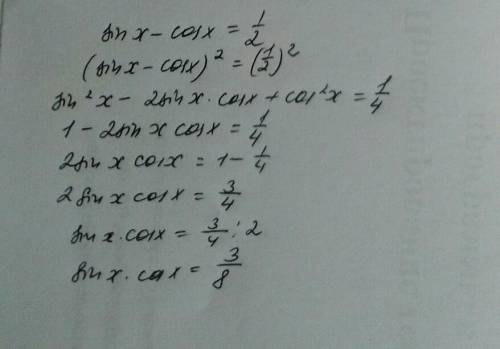 sin x - cos x = 1/2
(sin x - cos x)² = (1/2)²
sin²x - 2sin x · cos x + cos²x = 1/4
1 - 2sin x cos x = 1/4
2sin x cos x = 1 - 1/4
2 sin x cos x = 3/4
sin x · cos x = 3/4 : 2
sin x · cos x = 3/8